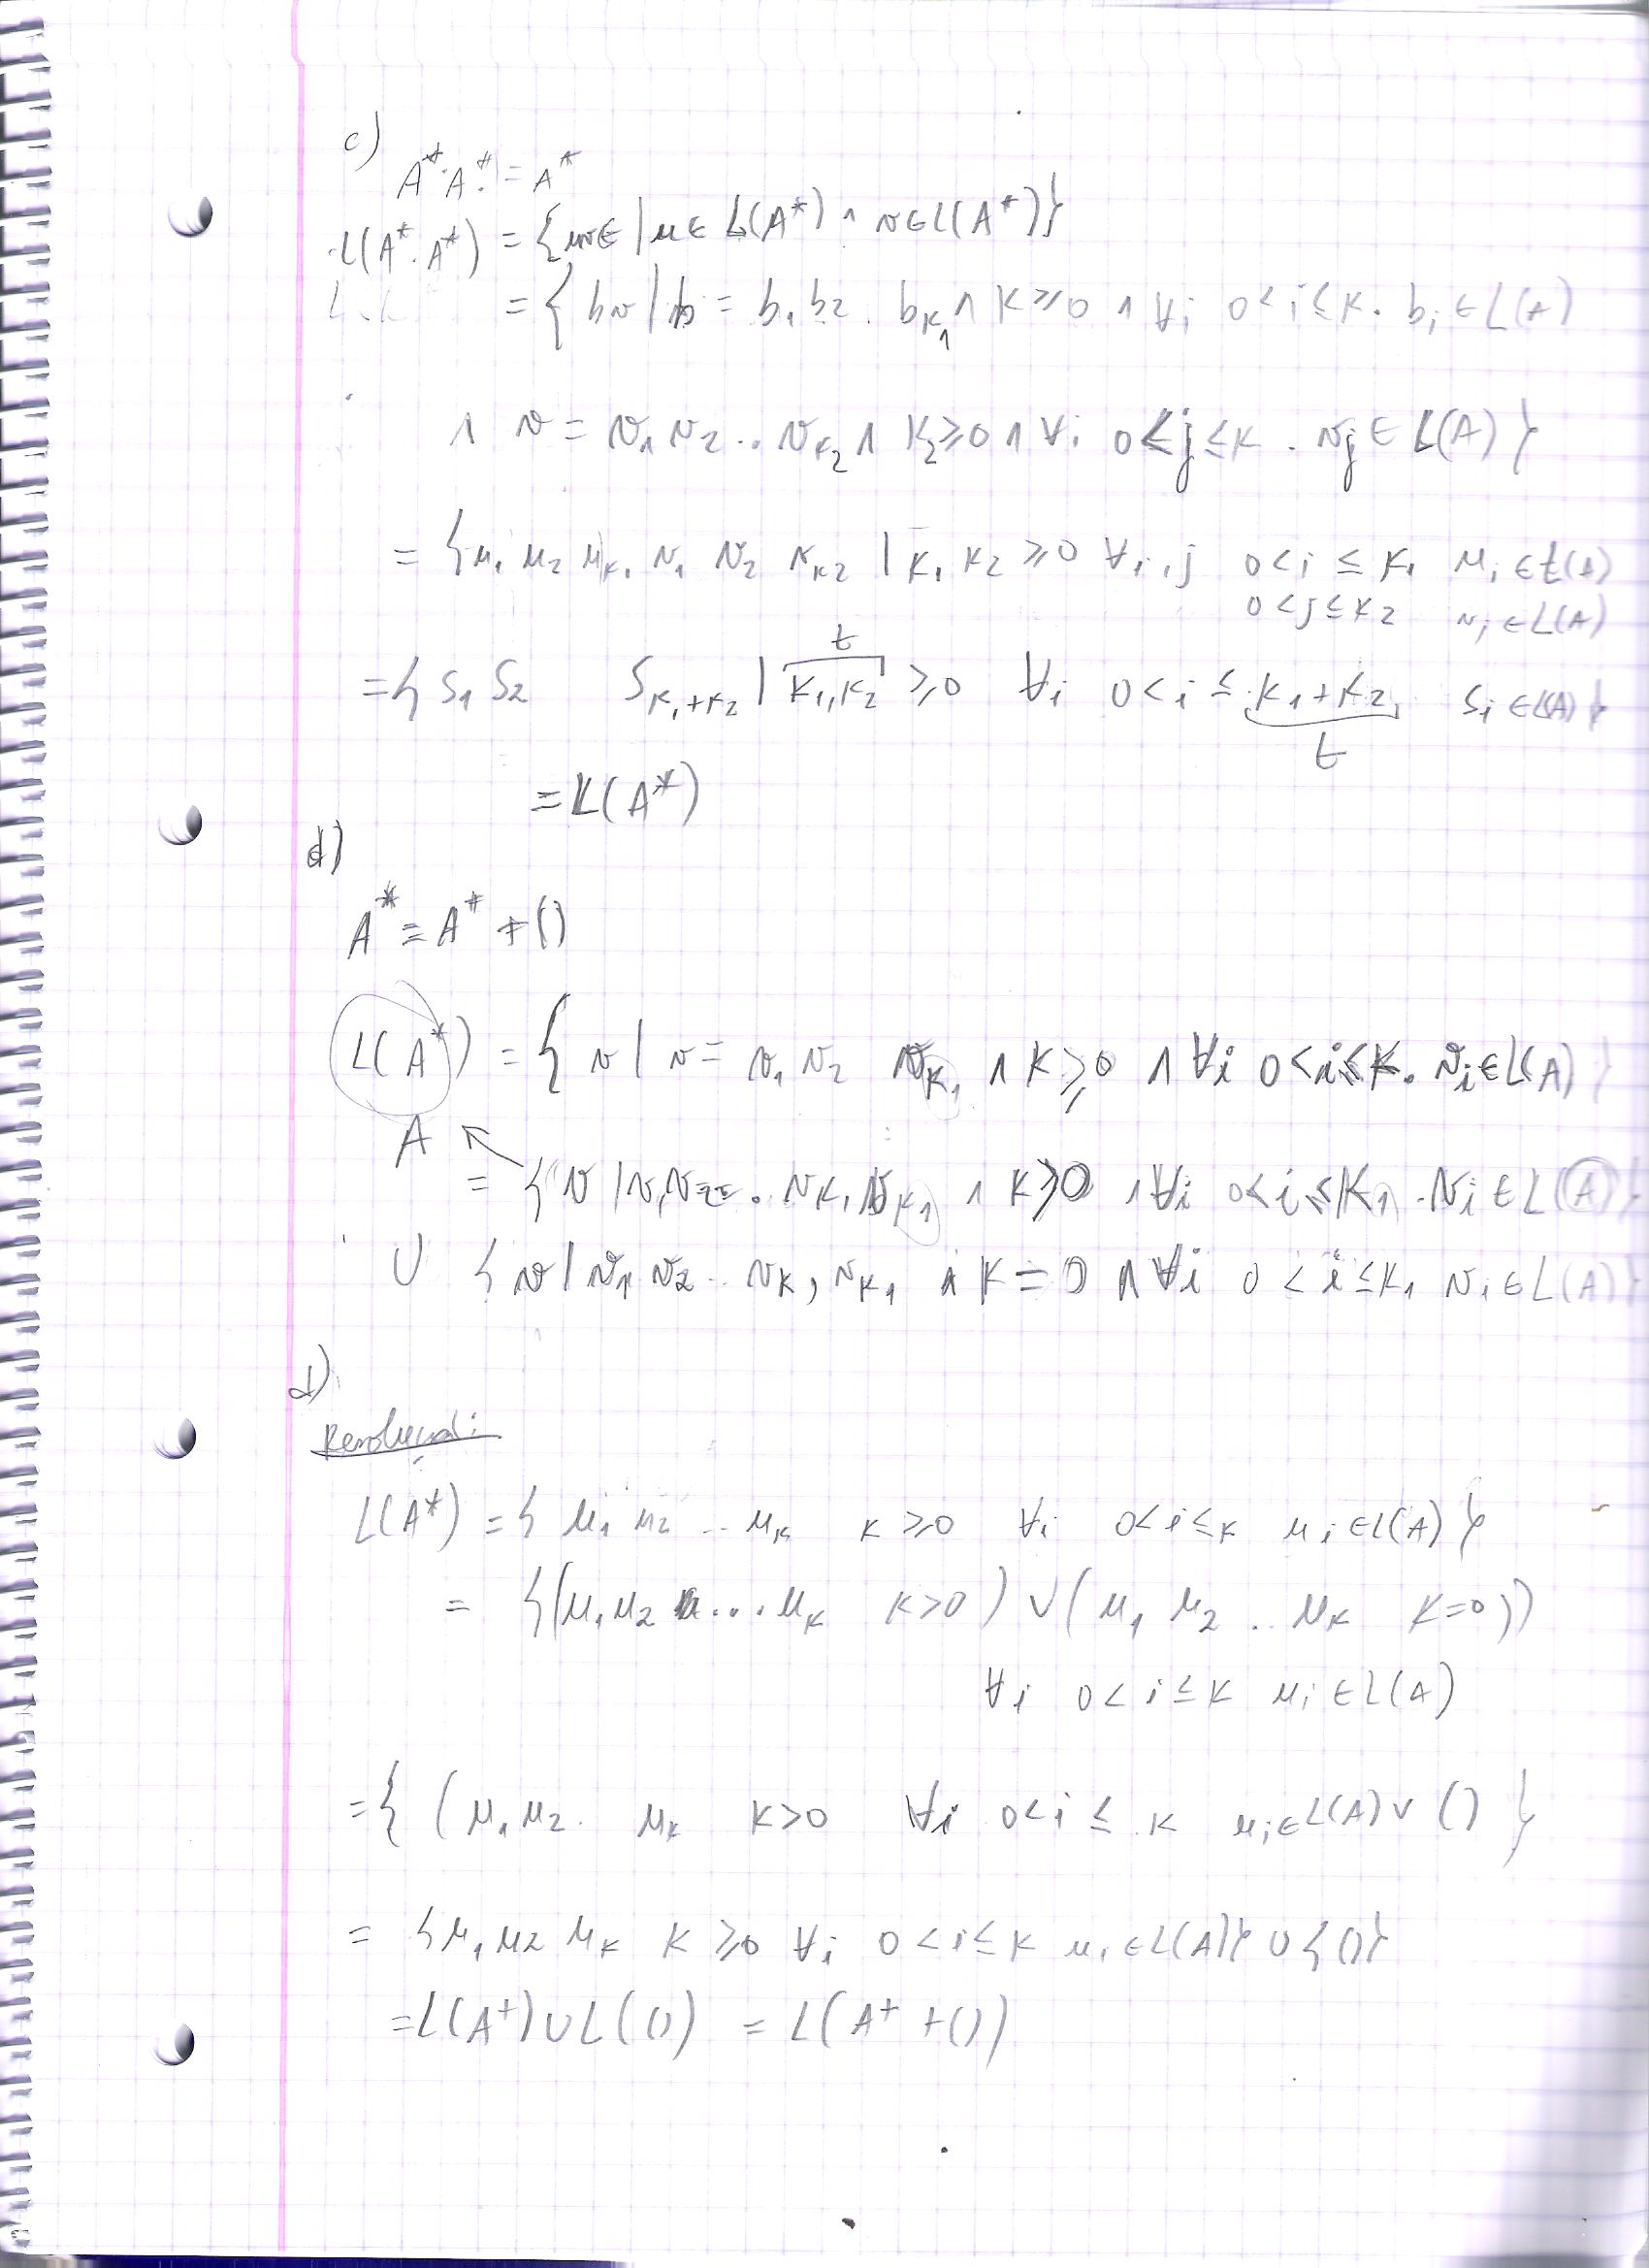 c)
A*·A* = A*
L(A*·A*) = {uv∈ | u∈ L(A*) ∧ v∈L(A*)}
= { bv | b = b₁ b₂ . b_k₁ ∧ K ≥ 0 ∧ ∀i 0 < i ≤ K . b_i ∈ L(A)
∧ v = v₁ v₂ .. v_k₂ ∧ K₂ ≥ 0 ∧ ∀i 0 ≤ j ≤ K . v_j ∈ L(A) }
= { u₁ u₂ u_k₁ v₁ v₂ v_k₂ | K₁ K₂ ≥ 0 ∀i,j 0 < i ≤ K₁ u_i ∈ L(A)
0 < j ≤ K₂ v_j ∈ L(A)
t
= { S₁ S₂ S_k₁+k₂ | K₁,K₂ ≥ 0 ∀i 0 < i ≤ K₁+K₂ S_i ∈ L(A) }
t
= L(A*)
d)
A* = A⁺ + ()
L(A*) = { v | v = v₁ v₂ v_k₁ ∧ K ≥ 0 ∧ ∀i 0 < i ≤ K . v_i ∈ L(A) }
A
= { v | v₁ v₂ = . v_k, v_k₁ ∧ K > 0 ∧ ∀i 0 < i ≤ K₁ . v_i ∈ L(A) }
∪ { v | v₁ v₂ .. v_k, v_k₁ ∧ K = 0 ∧ ∀i 0 < i ≤ K₁ v_i ∈ L(A) }
d)
Resolução:
L(A*) = { u₁ u₂ .. u_k K ≥ 0 ∀i 0 < i ≤ K u_i ∈ L(A) }
= { (u₁ u₂ ... u_k K > 0) ∨ (u₁ u₂ .. u_k K = 0) )
∀i 0 < i ≤ K u_i ∈ L(A)
= { ( u₁ u₂ . u_k K > 0 ∀i 0 < i ≤ K u_i ∈ L(A) ∨ () }
= { u₁ u₂ u_k K ≥ 0 ∀i 0 < i ≤ K u_i ∈ L(A) } ∪ { () }
= L(A⁺) ∪ L(()) = L(A⁺ + ())